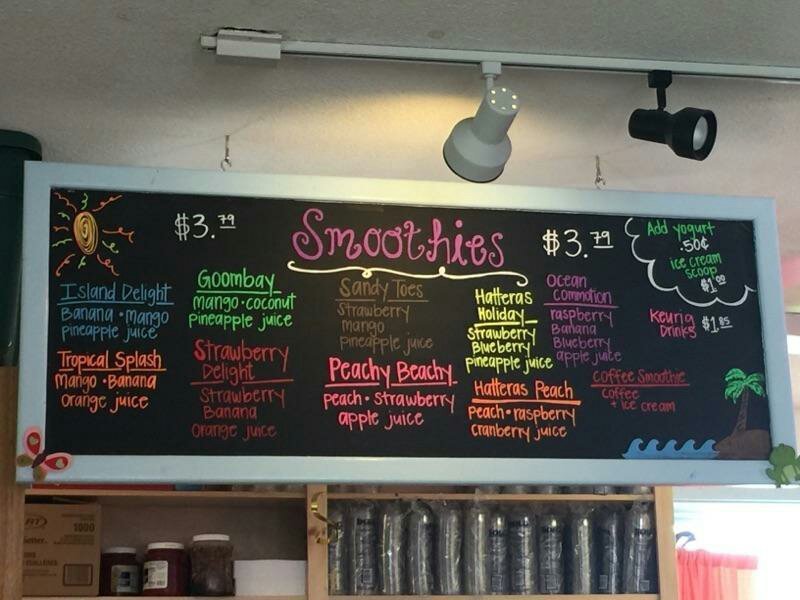 Smoothies
$3.79
$3.79
Add yogurt
.50¢
ice cream
scoop
$1.00
Keurig
Drinks
$1.85
Island Delight
Banana • mango
pineapple juice
Tropical Splash
Mango • Banana
orange juice
Goombay
mango • coconut
pineapple juice
Strawberry
Delight
Strawberry
Banana
orange juice
Sandy Toes
Strawberry
mango
pineapple juice
Peachy Beachy
peach • strawberry
apple juice
Hatteras
Holiday
strawberry
Blueberry
pineapple juice
Hatteras Peach
peach • raspberry
cranberry juice
Ocean
Commotion
raspberry
Banana
Blueberry
apple juice
Coffee Smoothie
coffee
+ ice cream
1000